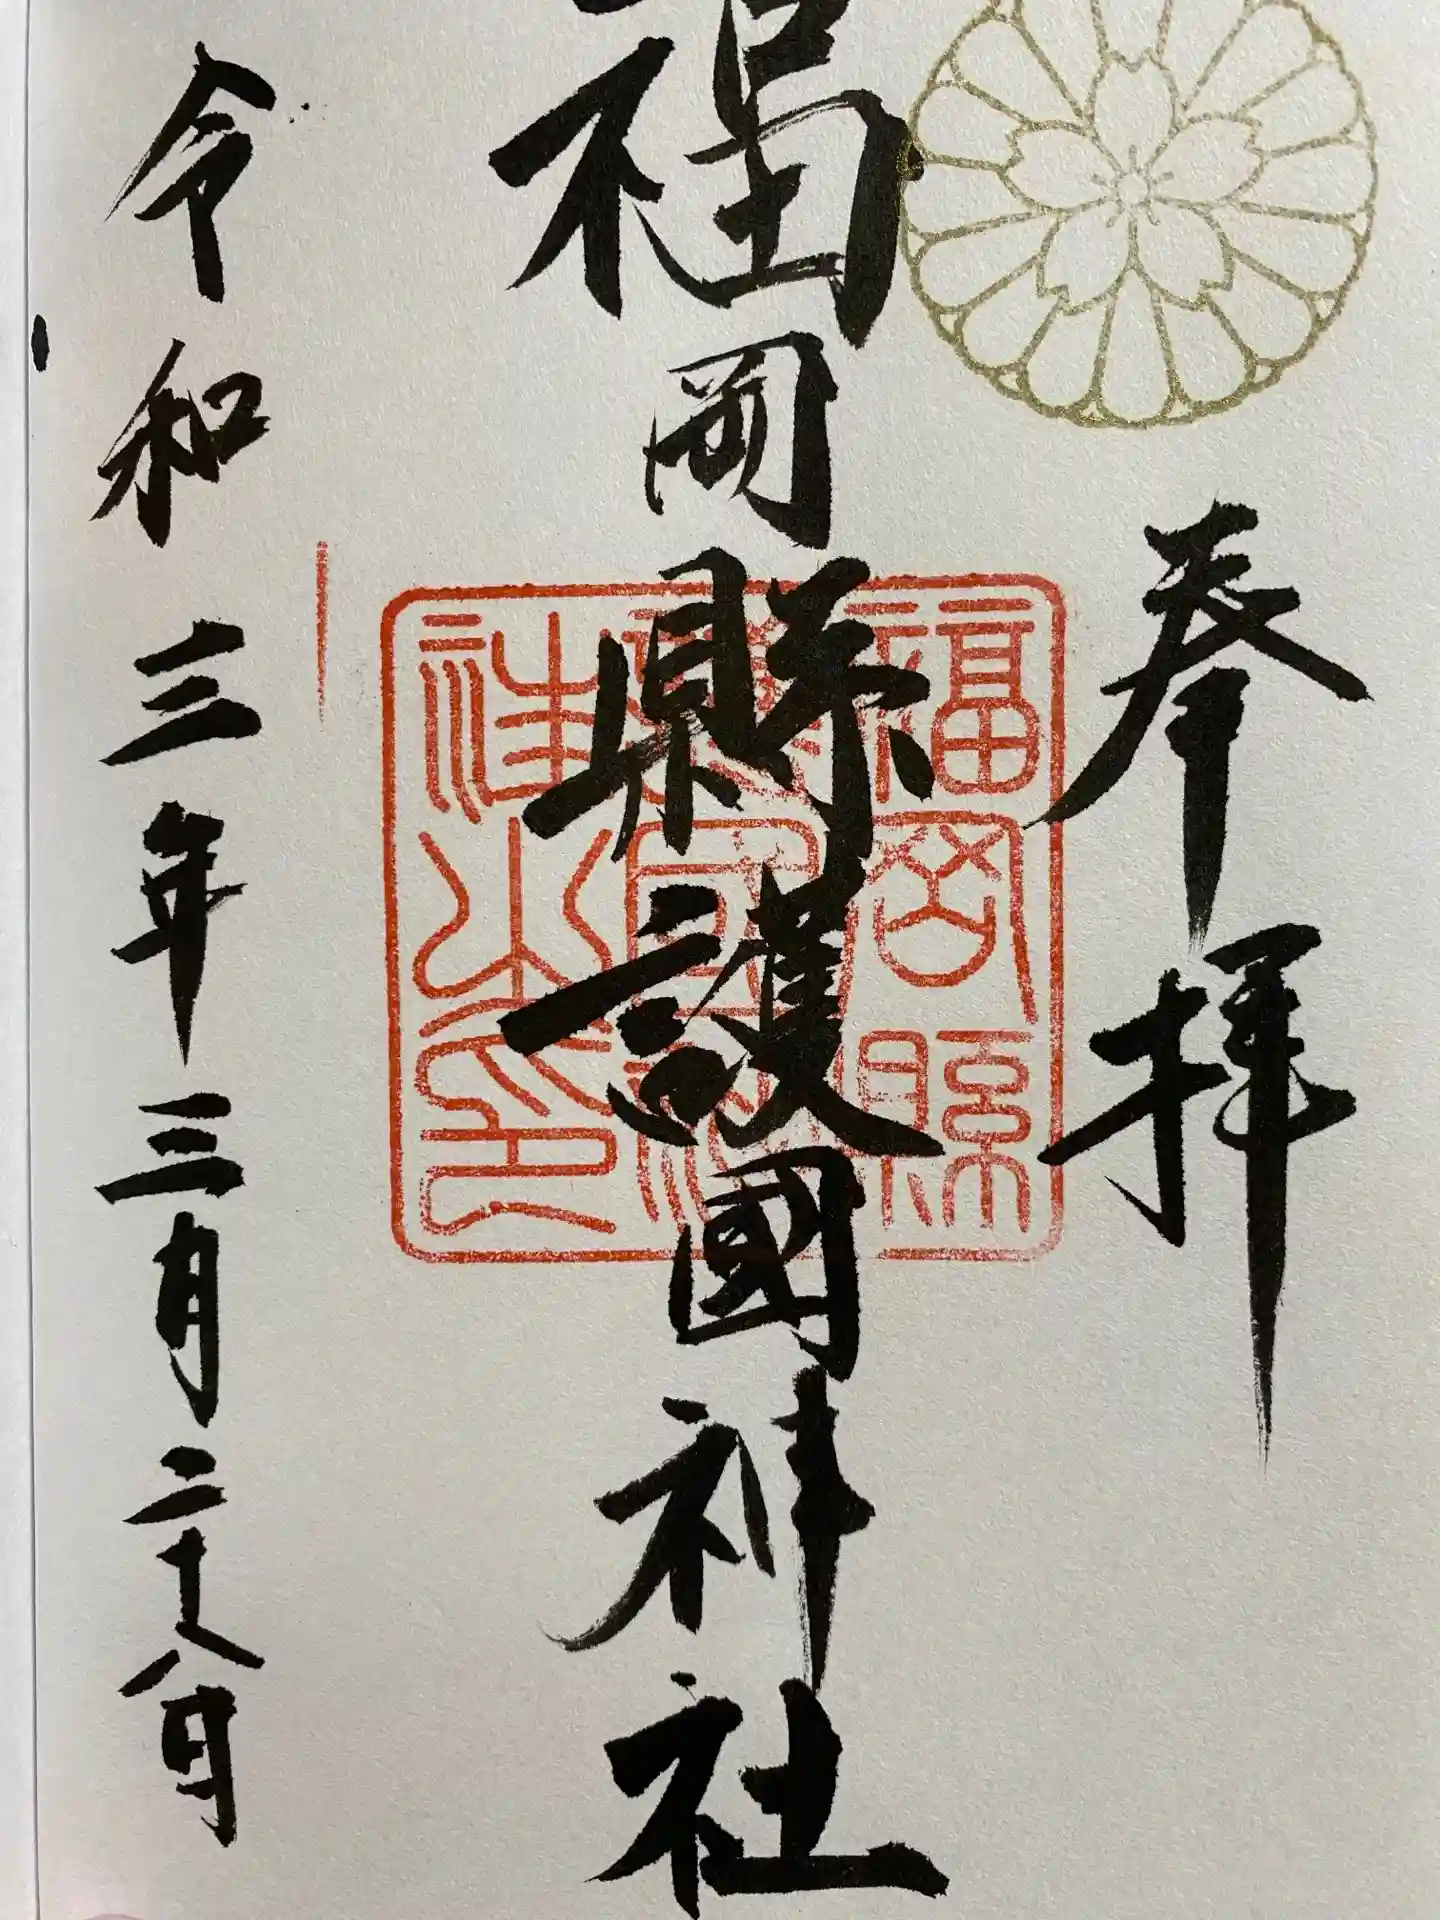 奉拝
福岡縣護國神社
福岡縣
護國神
社之印
令和三年三月二十八日